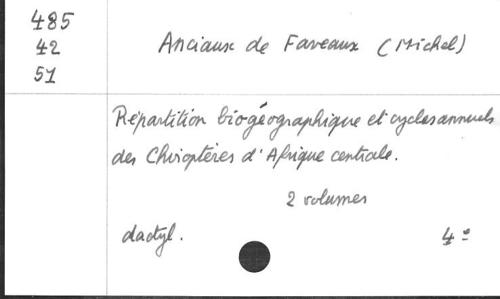 485
42
51
Anciaux de Faveaux (Michel)
Répartition biogéographique et cycles annuels
des Chiroptères d'Afrique centrale.
2 volumes
dactyl. 4°